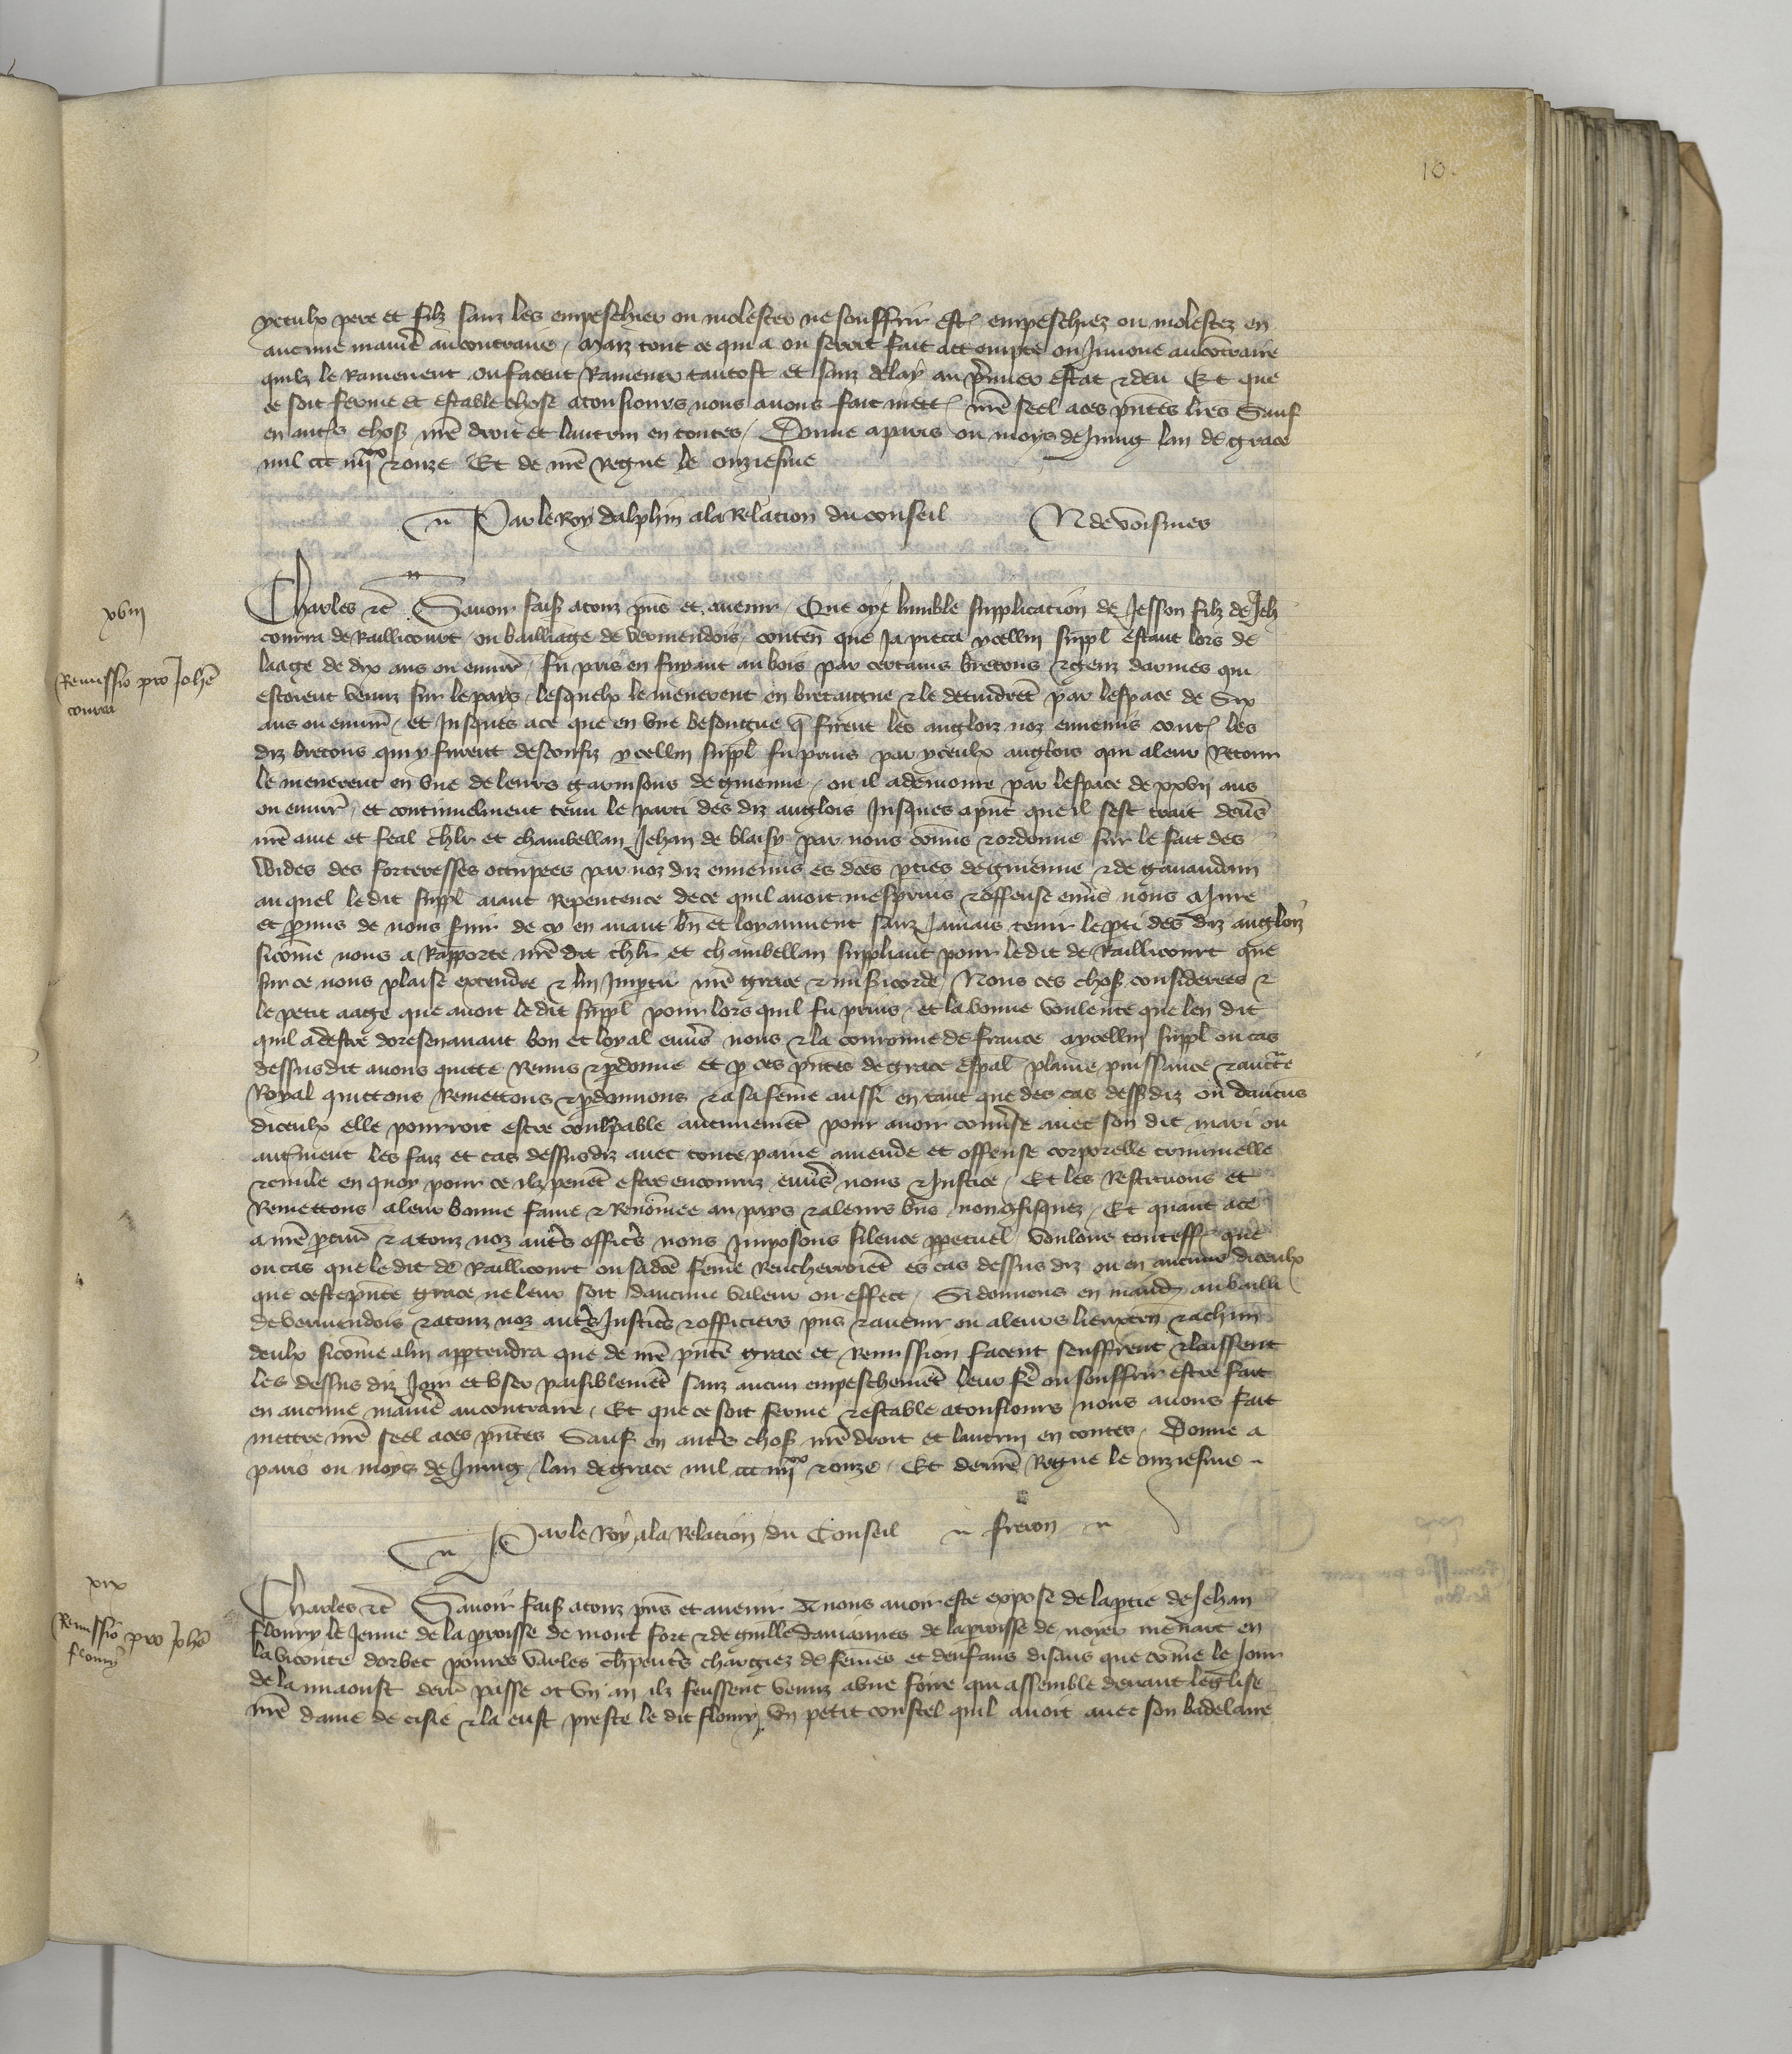 10.
yceulx pere et filz sanz les empeschier ou molester ne souffrir est empeschiez ou molestez en
aucune manie au contraire, Maiz tout ce qui a ou seroit fait attempte ou Innove au contraire
quilz le Ramenent ou facent Ramener tantost et sanz delay au premier estat & deu Et que
ce soit ferme et estable chose a tousiours nous avons fait mett nre seel a ces pntes lres Sauf
en autres choses nre droit et lautrui en toutes, Donne a paris ou moys de Juing lan de grace
mil ccc iiiixx & onze Et de nre Regne le onziesme
Par le Roy dalphin a la Relacion du conseil N de voisines
xviii
Remissio pro Johe
courra
Charles &c Savoir faiss a touz pns et avenir, Que oye lumble supplicacion de Jesson filz de Jeh
courra de Raillicourt ou bailliage de vermendois, conten que Ja pieca ycellui suppl estant lors de
laage de dix ans ou envir, fu pris en fuyant au bois par certains bretons & genz darmes qui
estoient venuz sur le pays, lesquelx le menerent en bretaigne & le detindret par lespace de Six
ans ou envirn, et Jusques a ce que en une besongne q firent les anglois noz ennemis cont les
diz bretons qui y furent desconfiz ycellui suppl fu prins par yceulx anglois qui a leur Retour
le menerent en une de leurs garnisons de guienne, ou il a demoure par lespace de xxvii ans
ou envir, et continuelment tenu le parti des diz anglois Jusques a pnt que il sest trait devs
nre ame et feal chlr et chambellan Jehan de blaisy par nous comis & ordonne sur le fait des
wides des forteresses occupees par noz diz ennemis es dces pties de guienne & de gavaudam
au quel le dit suppl aiant Repentence de ce quil avoit mesprins & offense envs nous a Jure
et pmis de nous suir de cy en avant bn et loyaument sanz Jamais tenir le pti des diz anglois
sicome nous a Rapporte nre dit chlr et chambellan suppliant pour le dit de Raillicourt que
sur ce nous plaise extendre & lui Impti nre grace & misicorde, Nous ces choses considerees &
le petit aage que avoit le dit suppl pour lors quil fu prins, et la bonne voulente que len dit
quil a destre doresenavant bon et loyal envs nous & la couronne de france a ycellui suppl ou cas
dessusdit avons quitte Remis & pdonne et p ces pntes de grace espal plaine puissance & auctte
Royal quittons Remettons & pdonnons & a sa feme aussi en tant que des cas dessdiz ou daucuns
diceulx elle pourroit estre coulpable aucunement pour avoir convse avec son dit mari ou
autrment les faiz et cas dessusdiz avec toute paine amende et offense corporelle criminelle
& civile en quoy pour ce ilz peuent estre encouruz envs nous & Justice, Et les Restituons et
Remettons a leur bonne fame & Renomee au pays & a leurs bns non gfisquez, Et quant a ce
a nre pcur & a touz noz autrs offics nous Imposons silence ppetuel, voulons toutesff que
ou cas que le dit de Raillicourt ou sa dce feme Rencherroient es cas dessus diz ou en aucuns diceulx
que ceste pnte grace ne leur soit daucune valeur ou effect, Si donnons en mand au bailli
de vermendois & a touz noz autrs Justics & officiers pns & avenir ou a leurs lieuxten & a chun
deulx sicome a lui apptendra que de nre pnte grace et Remission facent seuffrent & laissent
les dessus diz Joir et user paisiblement sanz aucun empeschement leur fe ou souffrir estre fait
en aucune manie au contraire, Et que ce soit ferme & estable a tousiours nous avons fait
mettre nre seel a ces pntes Sauf en autrs choses nre droit et lautrui en toutes, Donne a
paris ou moys de Juing, lan de grace mil ccc iiiixx & onze, Et de nre Regne le onziesme
Par le Roy a la Relacion du Conseil freron
xix
Remissio pro Johe
floury
Charles &c Savoir faiss a touz pns et avenir A nous avoir este expose de la ptie de Jehan
floury le Jenne de la proisse de mont fort & de guille daviannes de la proisse de noyer menart en
la viconte dorbec povres varles chpents chargiez de femes et denfans disans que come le Jour
de la miaoust derr passe ot un an ilz feussent venuz a une foire qui assemble devant leglise
nre dame de cisie & la eust preste le dit floury un petit coustel quil avoit avec son badelaire